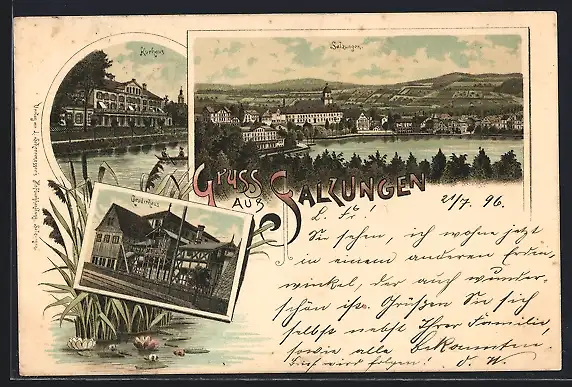 Kurhaus
Salzungen.
Gradirhaus
Gruss
aus
Salzungen
21/7. 96.
L. Fr!
Sie sehen, ich wohne jetzt
in einem anderen Erden-
winkel, der auch wunder-
schön ist. Grüßen Sie sich
selbst nebst Ihrer Familie,
sowie alle Bekannten.
Brief wird folgen! d. W.